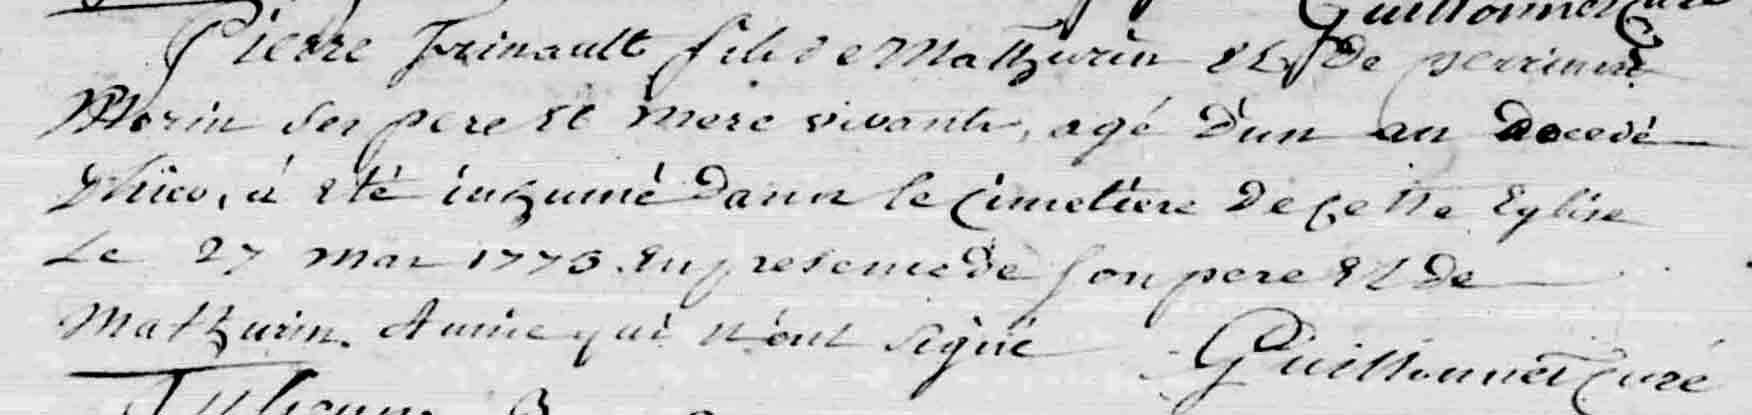 Guillonnet Curé
Pierre Trinault fils de Mathurin et de perrinne
Morin ses pere et mere vivants, agé d'un an decedé
d'hier, a eté inhumé dans le cimetiere de cette Eglise
Le 27 mars 1773 en presence de son pere et de
Mathurin qui n'ont signé Guillonnet Curé